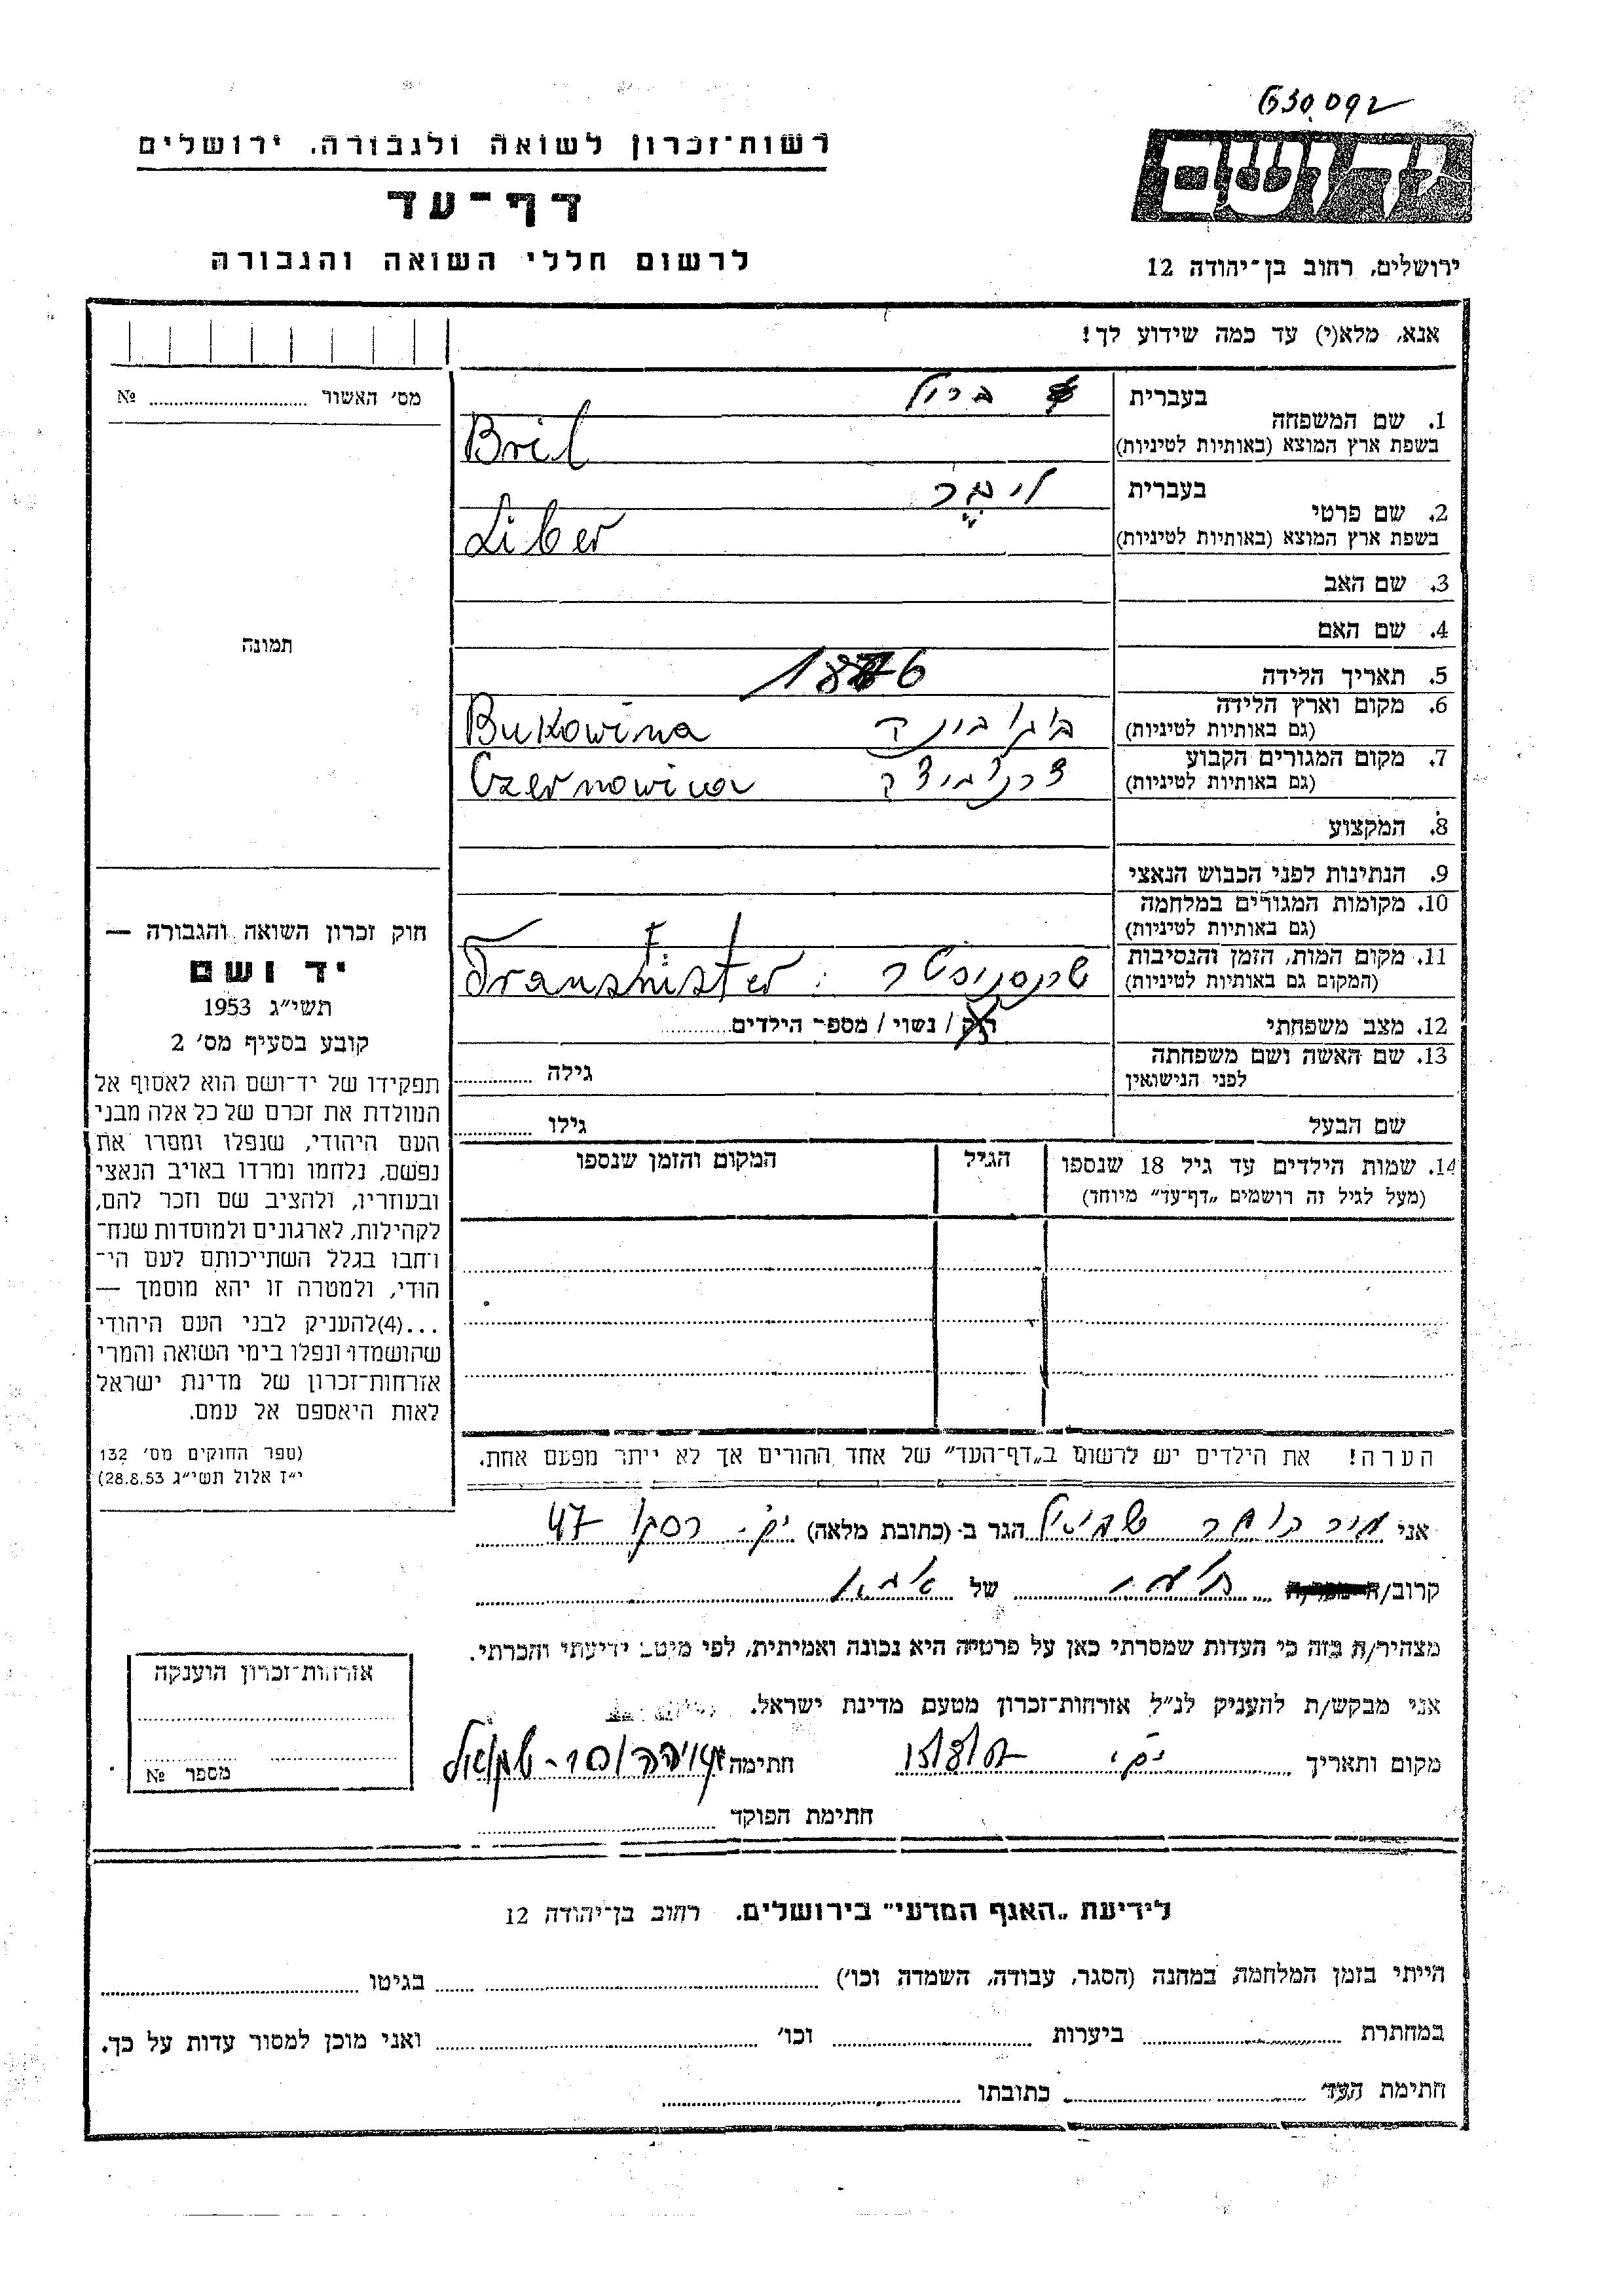 630092
רשות־זכרון לשואה ולגבורה. ירושלים
יד ושם
דף־עד
לרשום חללי השואה והגבורה
ירושלים, רחוב בן־יהודה 12
אנא, מלא(י) עד כמה שידוע לך!
מס׳ האשור № 
בעברית בריל
1. שם המשפחה
בשפת ארץ המוצא (באותיות לטיניות) Bril
בעברית ליבר
2. שם פרטי
בשפת ארץ המוצא (באותיות לטיניות) Liber
3. שם האב
4. שם האם
תמונה
5. תאריך הלידה 1876
6. מקום וארץ הלידה
(גם באותיות לטיניות) בוקובינה Bukowina
7. מקום המגורים הקבוע
(גם באותיות לטיניות) Czernowica
8. המקצוע
9. הנתינות לפני הכבוש הנאצי
10. מקומות המגורים במלחמה
(גם באותיות לטיניות)
11. מקום המות, הזמן והנסיבות
(המקום גם באותיות לטיניות) Transnister
12. מצב משפחתי רווק / נשוי / מספר הילדים
13. שם האשה ושם משפחתה
לפני הנישואין גילה
שם הבעל גילו
14. שמות הילדים עד גיל 18 שנספו הגיל המקום והזמן שנספו
(מעל לגיל זה רושמים „דף־עד״ מיוחד)
חוק זכרון השואה והגבורה —
יד ושם
תשי״ג 1953
קובע בסעיף מס׳ 2
תפקידו של יד־ושם הוא לאסוף אל
המולדת את זכרם של כל אלה מבני
העם היהודי, שנפלו ומסרו את
נפשם, נלחמו ומרדו באויב הנאצי
ובעוזריו, ולהציב שם וזכר להם,
לקהילות, לארגונים ולמוסדות שנח־
רחבו בגלל השתייכותם לעם הי־
הודי, ולמטרה זו יהא מוסמך —
...(4)להעניק לבני העם היהודי
שהושמדו ונפלו בימי השואה והמרי
אזרחות־זכרון של מדינת ישראל
לאות היאספם אל עמם.
(ספר החוקים מס׳ 132
י״ז אלול תשי״ג 28.8.53)
הערה! את הילדים יש לרשום ב„דף־העד״ של אחד ההורים אך לא ייתר מפעם אחת.
אני הגר ב־ (כתובת מלאה) 47
קרוב/ה של
מצהיר/ה בזה כי העדות שמסרתי כאן על פרטיה היא נכונה ואמיתית, לפי מיטב ידיעתי והכרתי.
אני מבקש/ת להעניק לנ״ל אזרחות־זכרון מטעם מדינת ישראל.
מקום ותאריך חתימה
חתימת הפוקד
אזרחות־זכרון הוענקה
מספר №
לידיעת „האגף המדעי״ בירושלים. רחוב בן־יהודה 12
הייתי בזמן המלחמה במחנה (הסגר, עבודה, השמדה וכו׳) בגיטו
במחתרת ביערות וכו׳ ואני מוכן למסור עדות על כך.
חתימת העד כתובתו